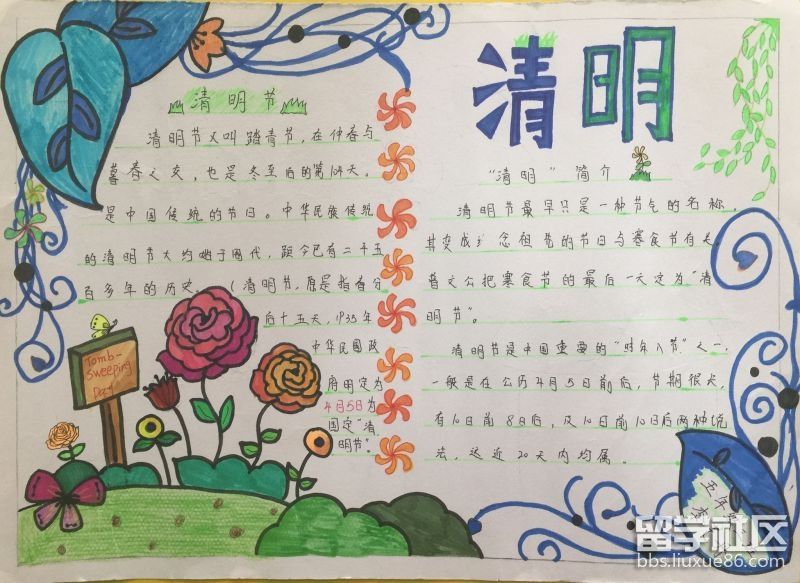 清明节
清明节又叫踏青节,在仲春与
暮春之交,也是冬至后的第104天。
是中国传统的节日。中华民族传统
的清明节大约始于周代,距今已有二千五
百多年的历史。(清明节,原是指春分
后十五天,1935年
中华民国政
府明定为
4月5日为
国定"清
明节"。
Tomb-
Sweeping
Day
清明
"清明"简介
清明节最早只是一种节气的名称,
其变成纪念祖先的节日与寒食节有关。
晋文公把寒食节的最后一天定为"清
明节"。
清明节是中国重要的"时年八节"之一,
一般是在公历4月5日前后,节期很长,
有10日前8日后,及10日前10日后两种说
法,这近20天内均属。
五年
留学社区
bbs.liuxue86.com